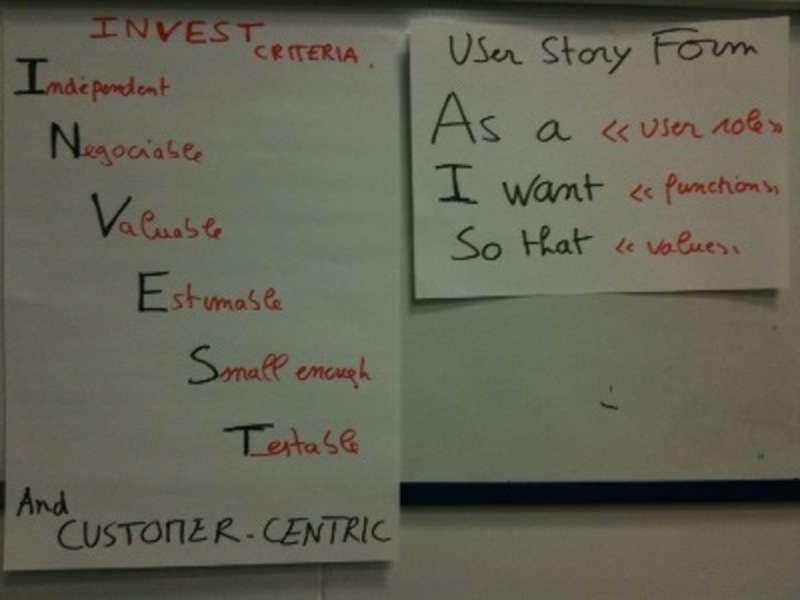 INVEST
CRITERIA.
Indépendent
Negociable
Valuable
Estimable
Small enough
Testable
And
CUSTOMER-CENTRIC
User Story Form
As a << user role >>
I want << function >>
So that << value >>